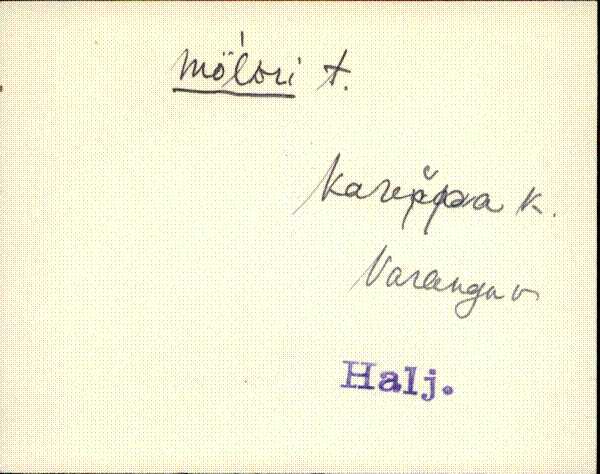 Möldri t.
Kareppa k.
Varangu v
Halj.